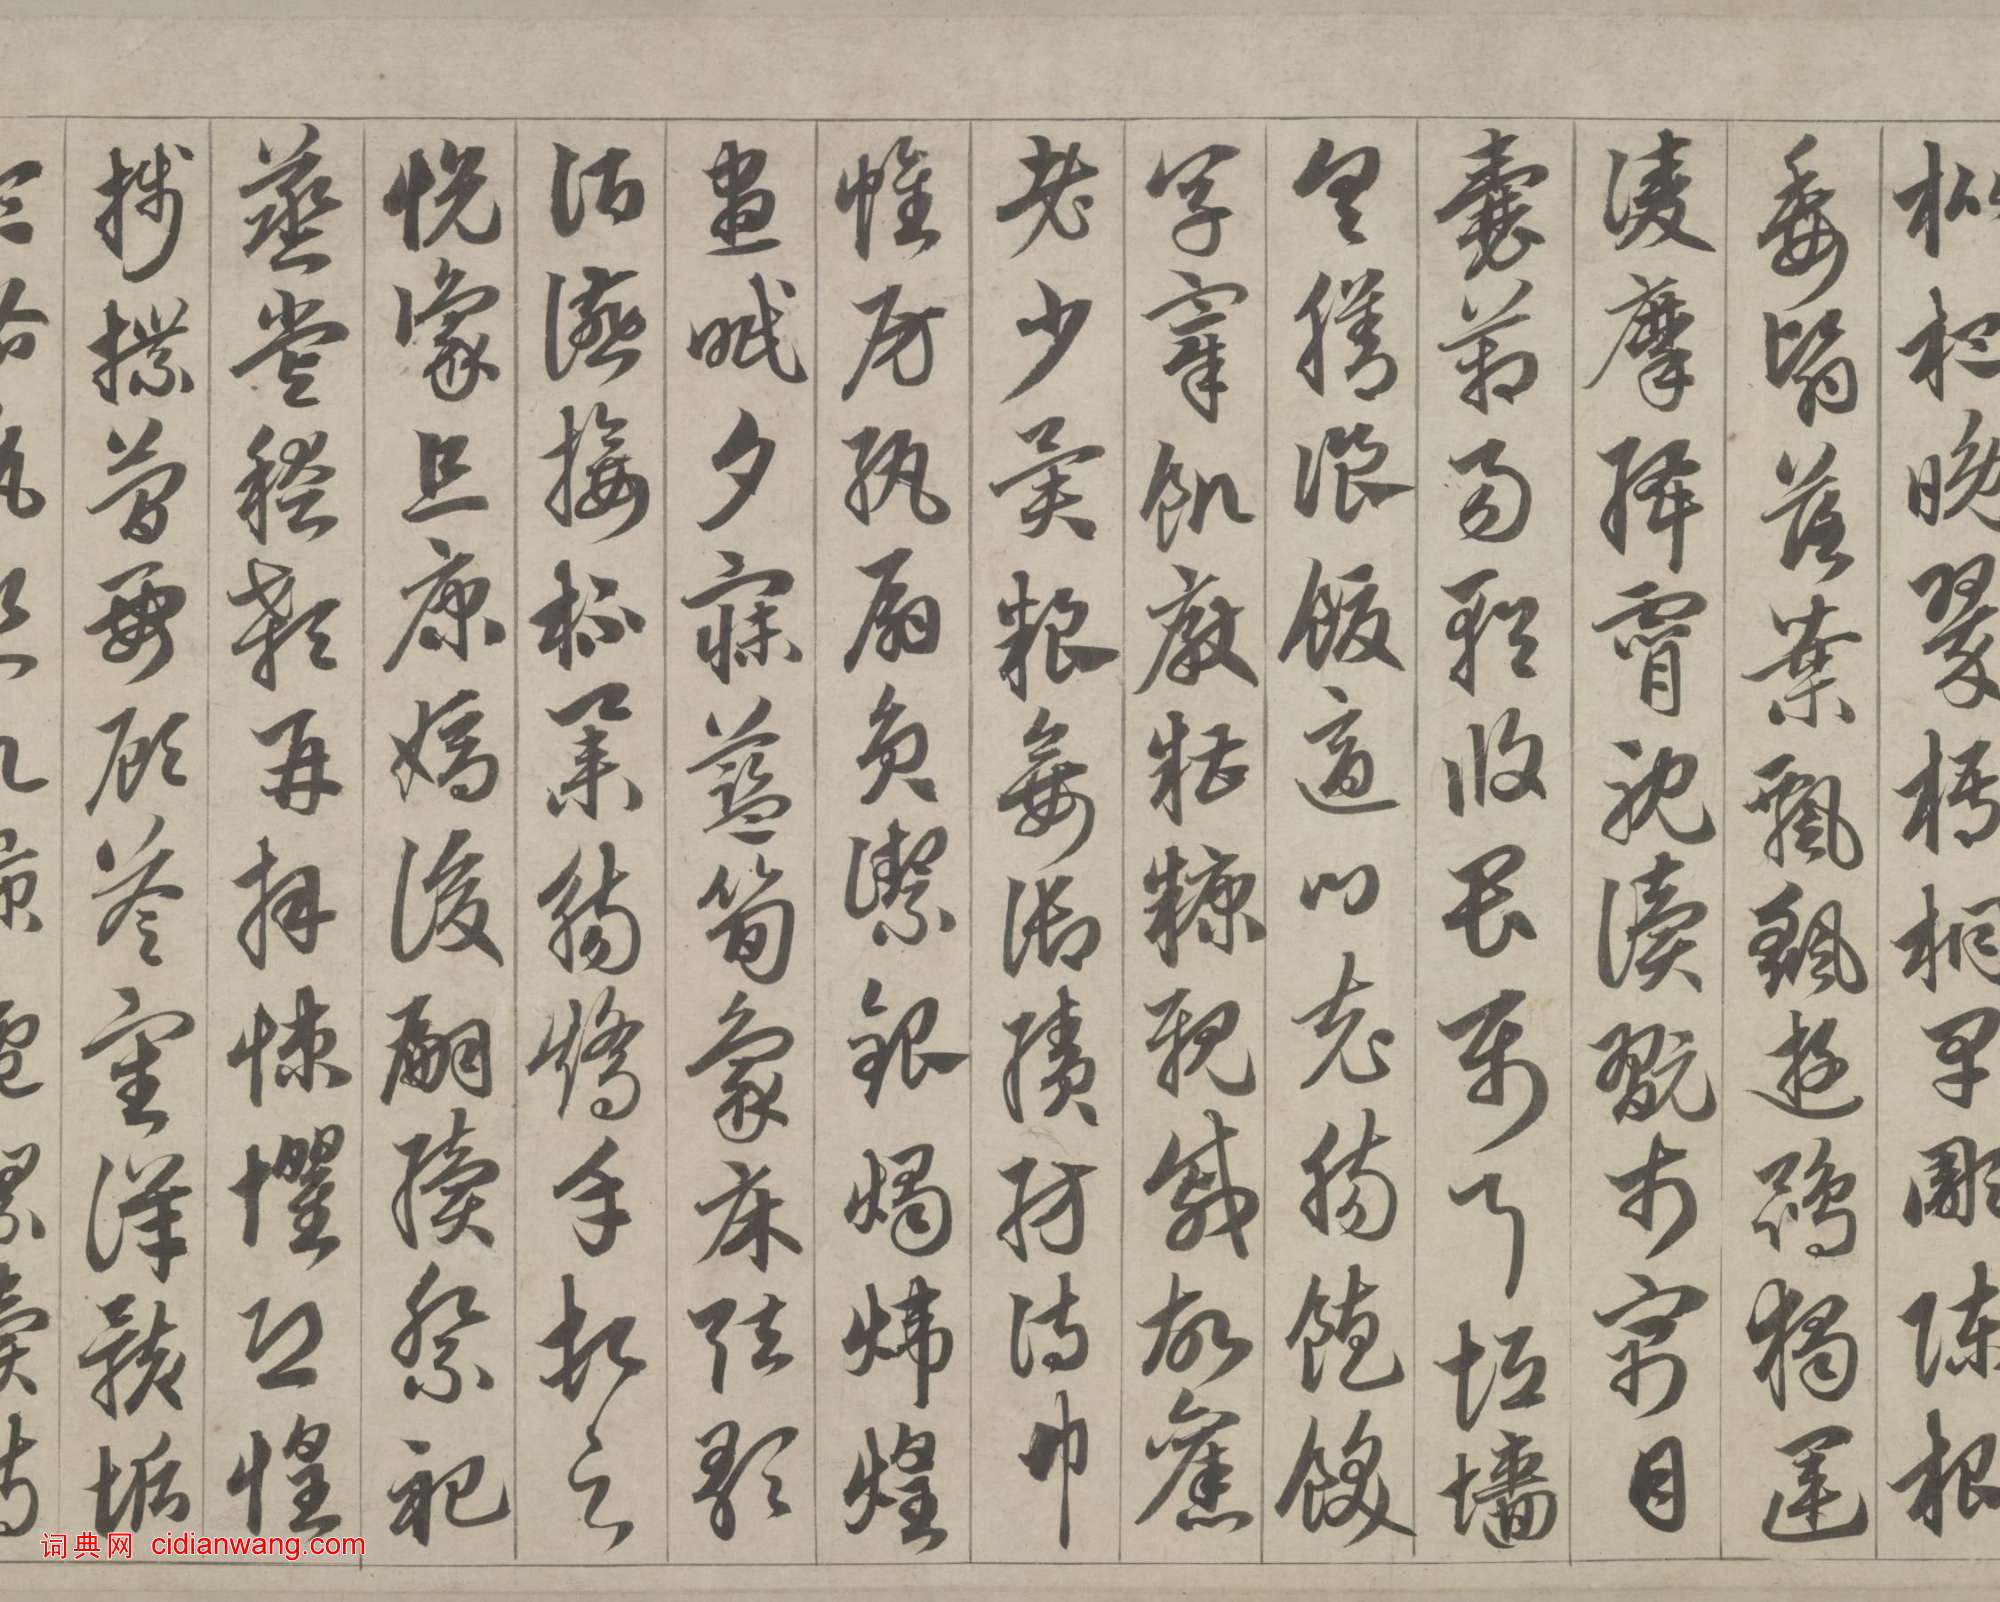 枇杷晚翠梧桐早雕陳根
委翳落葉飄颻遊鵾獨運
凌摩絳霄耽讀翫市寓目
囊箱易輶攸畏屬耳垣墻
具膳飡飯適口充腸飽飫
烹宰飢厭糟糠親戚故舊
老少異粮妾御績紡侍巾
帷房紈扇員潔銀燭煒煌
晝眠夕寐藍筍象床弦歌
酒讌接杯舉觴矯手頓足
悅豫且康嫡後嗣續祭祀
蒸嘗稽顙再拜悚懼恐惶
牋牒簡要顧答審詳骸垢
词典网 cidianwang.com